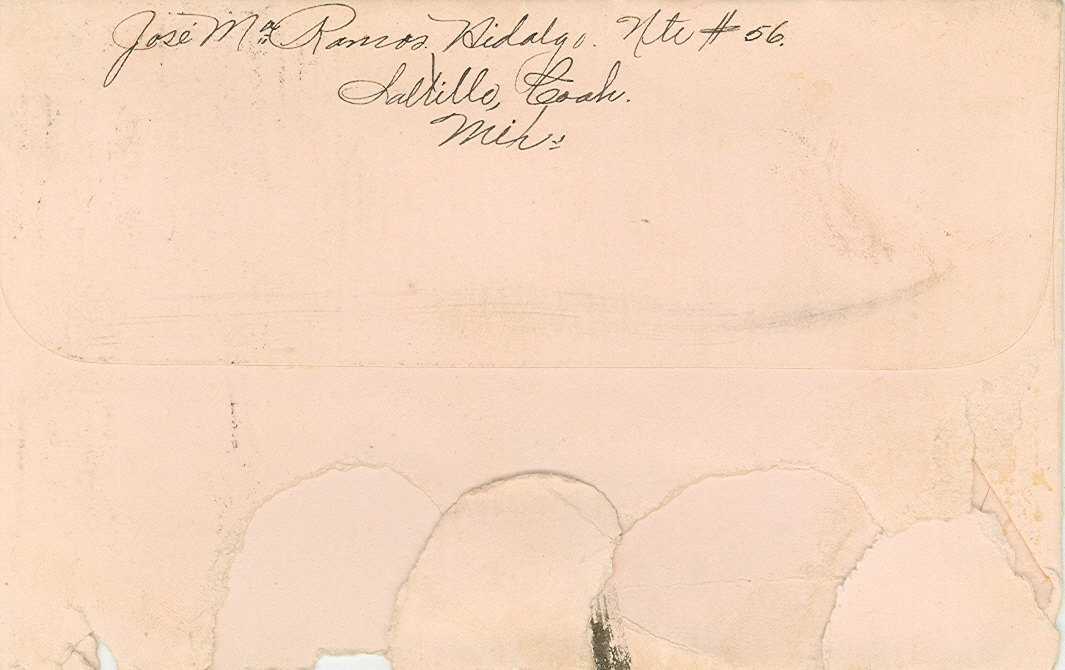 José Mª Ramos. Hidalgo. Nte # 56.
Saltillo, Coah.
Méx.